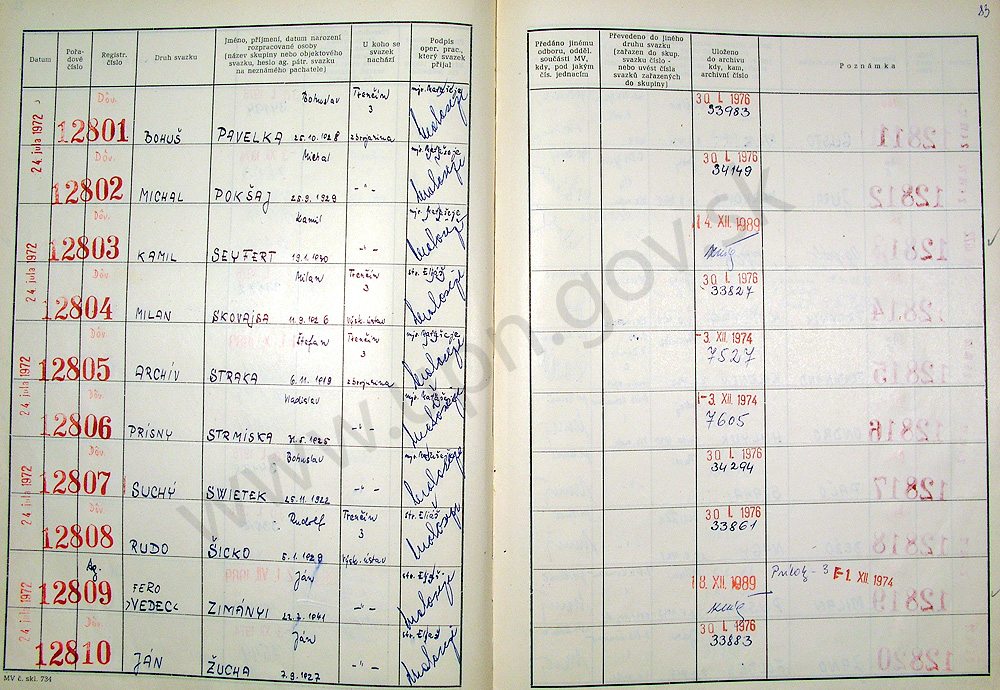 83
Datum
Pořadové číslo
Registr. číslo
Druh svazku
Jméno, příjmení, datum narození rozpracované osoby (název skupiny nebo objektového svazku, heslo ag. pátr. svazku na neznámého pachatele)
U koho se svazek nachází
Podpis oper. prac., který svazek přijal
Předáno jinému odboru, odděl. součásti MV, kdy, pod jakým čís. jednacím
Převedeno do jiného druhu svazku (zařazen do skup. svazku číslo - nebo uvést čísla svazků zařazených do skupiny)
Uloženo do archivu kdy, kam, archivní číslo
Poznámka
24 jula 1972
Dův.
12801
BOHUŠ
Bohuslav
PAVELKA 25.10.1928
Trenčín
3
zbrojovka
30 I. 1976
33983
Dův.
12802
MICHAL
Michal
POKŠAJ 25.9.1929
-"-
30 I. 1976
34149
24 jula 1972
Dův.
12803
KAMIL
Kamil
SEYFERT 19.1.1930
-"-
14. XII. 1989
Dův.
12804
MILAN
Milan
SKOVAJSA 11.9.1926
Trenčín
3
Výsk. ústav
str. Eliáš
30 I. 1976
33827
24 jula 1972
Dův.
12805
ARCHÍV
Štefan
STRAKA 6.11.1919
Trenčín
3
-3. XII. 1974
7527
Dův.
12806
PRÍSNY
Vladislav
STRMISKA
-"-
-3. XII. 1974
7605
24 jula 1972
Dův.
12807
SUCHÝ
Bohuslav
SWIETEK 25.11.1922
-"-
30 I. 1976
34294
Dův.
12808
RUDO
Rudolf
ŠICKO 5.1.1929
Trenčín
3
Výsk. ústav
str. Eliáš
30 I. 1976
33861
24 jula 1972
Ag.
12809
FERO
"VEDEC"
Ján
ZIMÁNYI 22.3.1941
-"-
str. Eliáš
18. XII. 1989
-1. XII 1974
Dův.
12810
JÁN
Ján
ŽUCHA 7.9.1927
-"-
str. Eliáš
30 I. 1976
33883
MV č. skl. 734
www.upn.gov.sk